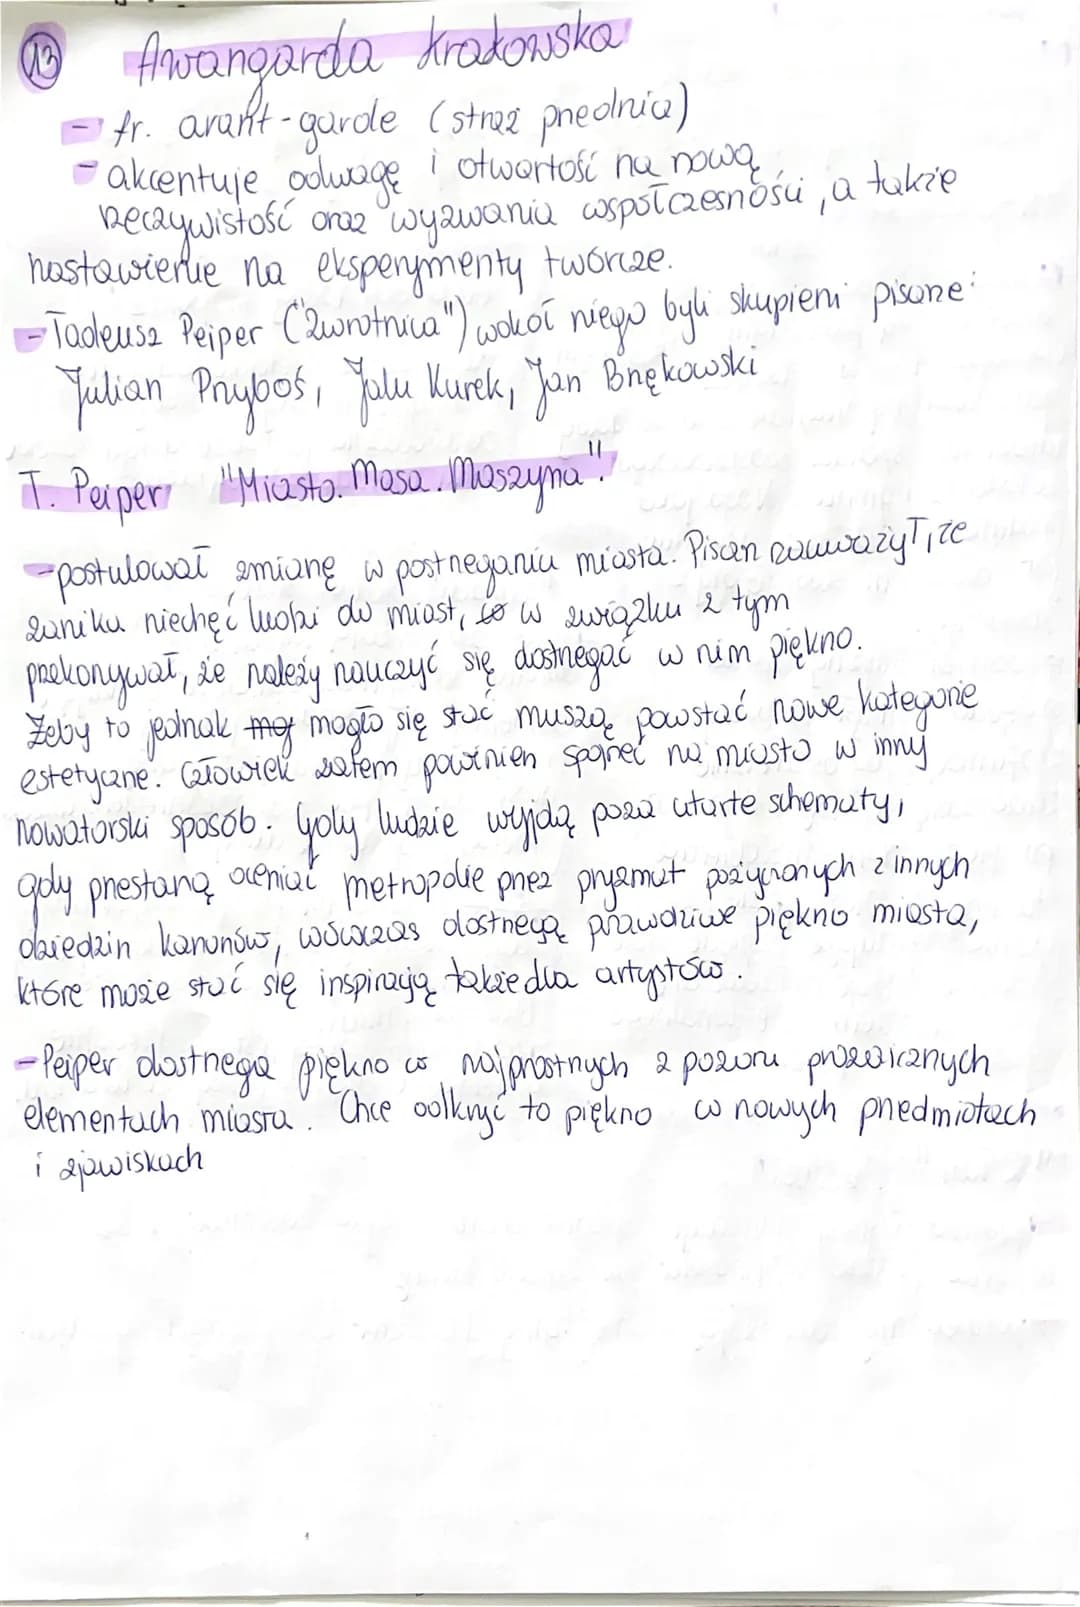 13 Awangarda krakowska
- fr. avant-garde (straż przednia)
- akcentuje odwagę i otwartość na nową
rzeczywistość oraz wyzwania współczesności, a także
nastawienie na eksperymenty twórcze.
- Tadeusz Peiper ("Zwrotnica") wokół niego byli skupieni pisarze:
Julian Przyboś, Jalu Kurek, Jan Brzękowski
T. Peiper "Miasto. Masa. Maszyna".
- postulował zmianę w postrzeganiu miasta. Pisarz zauważył, że
zanika niechęć ludzi do miast, w związku z tym
przekonywał, że należy nauczyć się dostrzegać w nim piękno.
Żeby to jednak mog mogło się stać muszą powstać nowe kategorie
estetyczne. Człowiek zatem powinien spojrzeć na miasto w inny
nowatorski sposób. Gdy ludzie wyjdą poza utarte schematy,
gdy przestaną oceniać metropolie przez pryzmat pożyczonych z innych
dziedzin kanonów, wówczas dostrzegą prawdziwe piękno miasta,
które może stać się inspiracją także dla artystów.
- Peiper dostrzega piękno w najprostszych z pozoru prozaicznych
elementach miasta. Chce odkryć to piękno w nowych przedmiotach
i zjawiskach